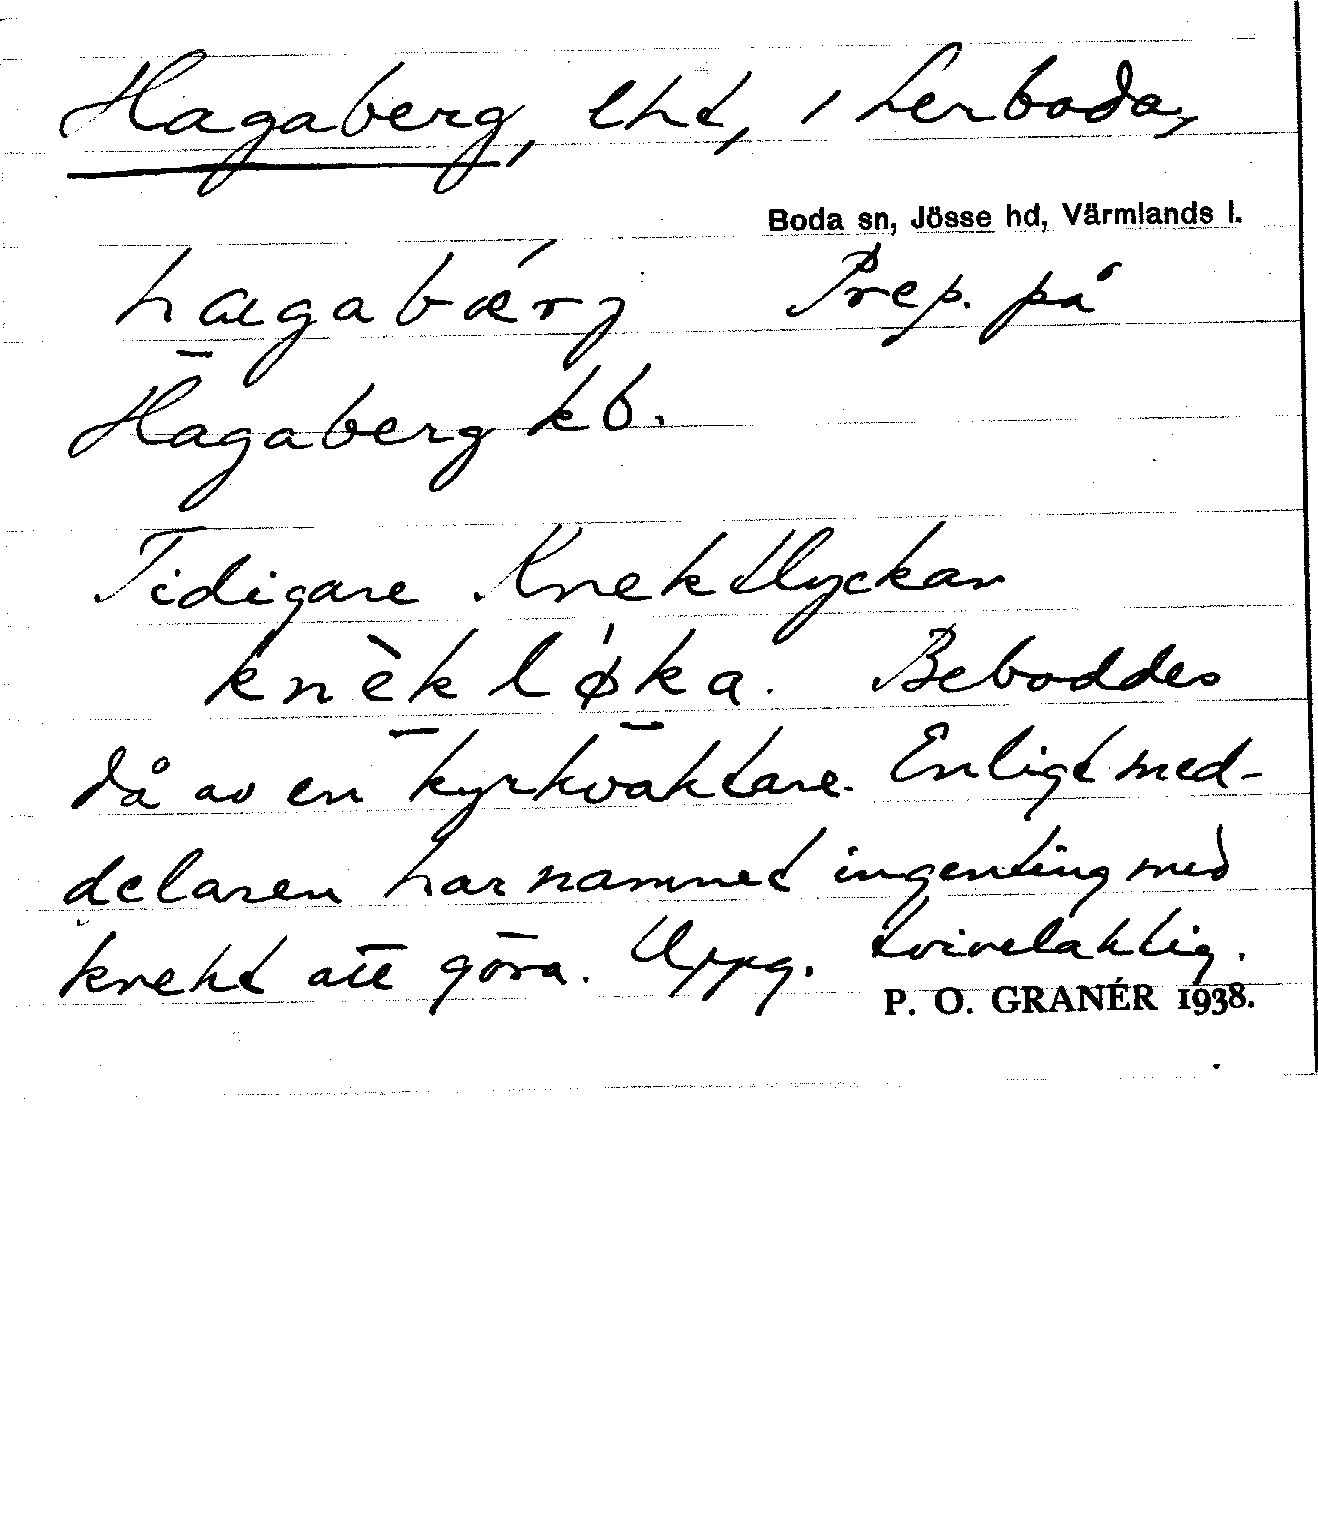 Hagaberg, lht, i Lerboda,
Boda sn, Jösse hd, Värmlands l.
hagabǽrj Prep. på
Hagaberg kb.
Tidigare Knektlyckan
knèklǿka. Beboddes
då av en kyrkvaktare. Enligt med-
delaren har namnet ingenting med
knekt att göra. Uppg. tvivelaktig.
P. O. GRANÉR 1938.